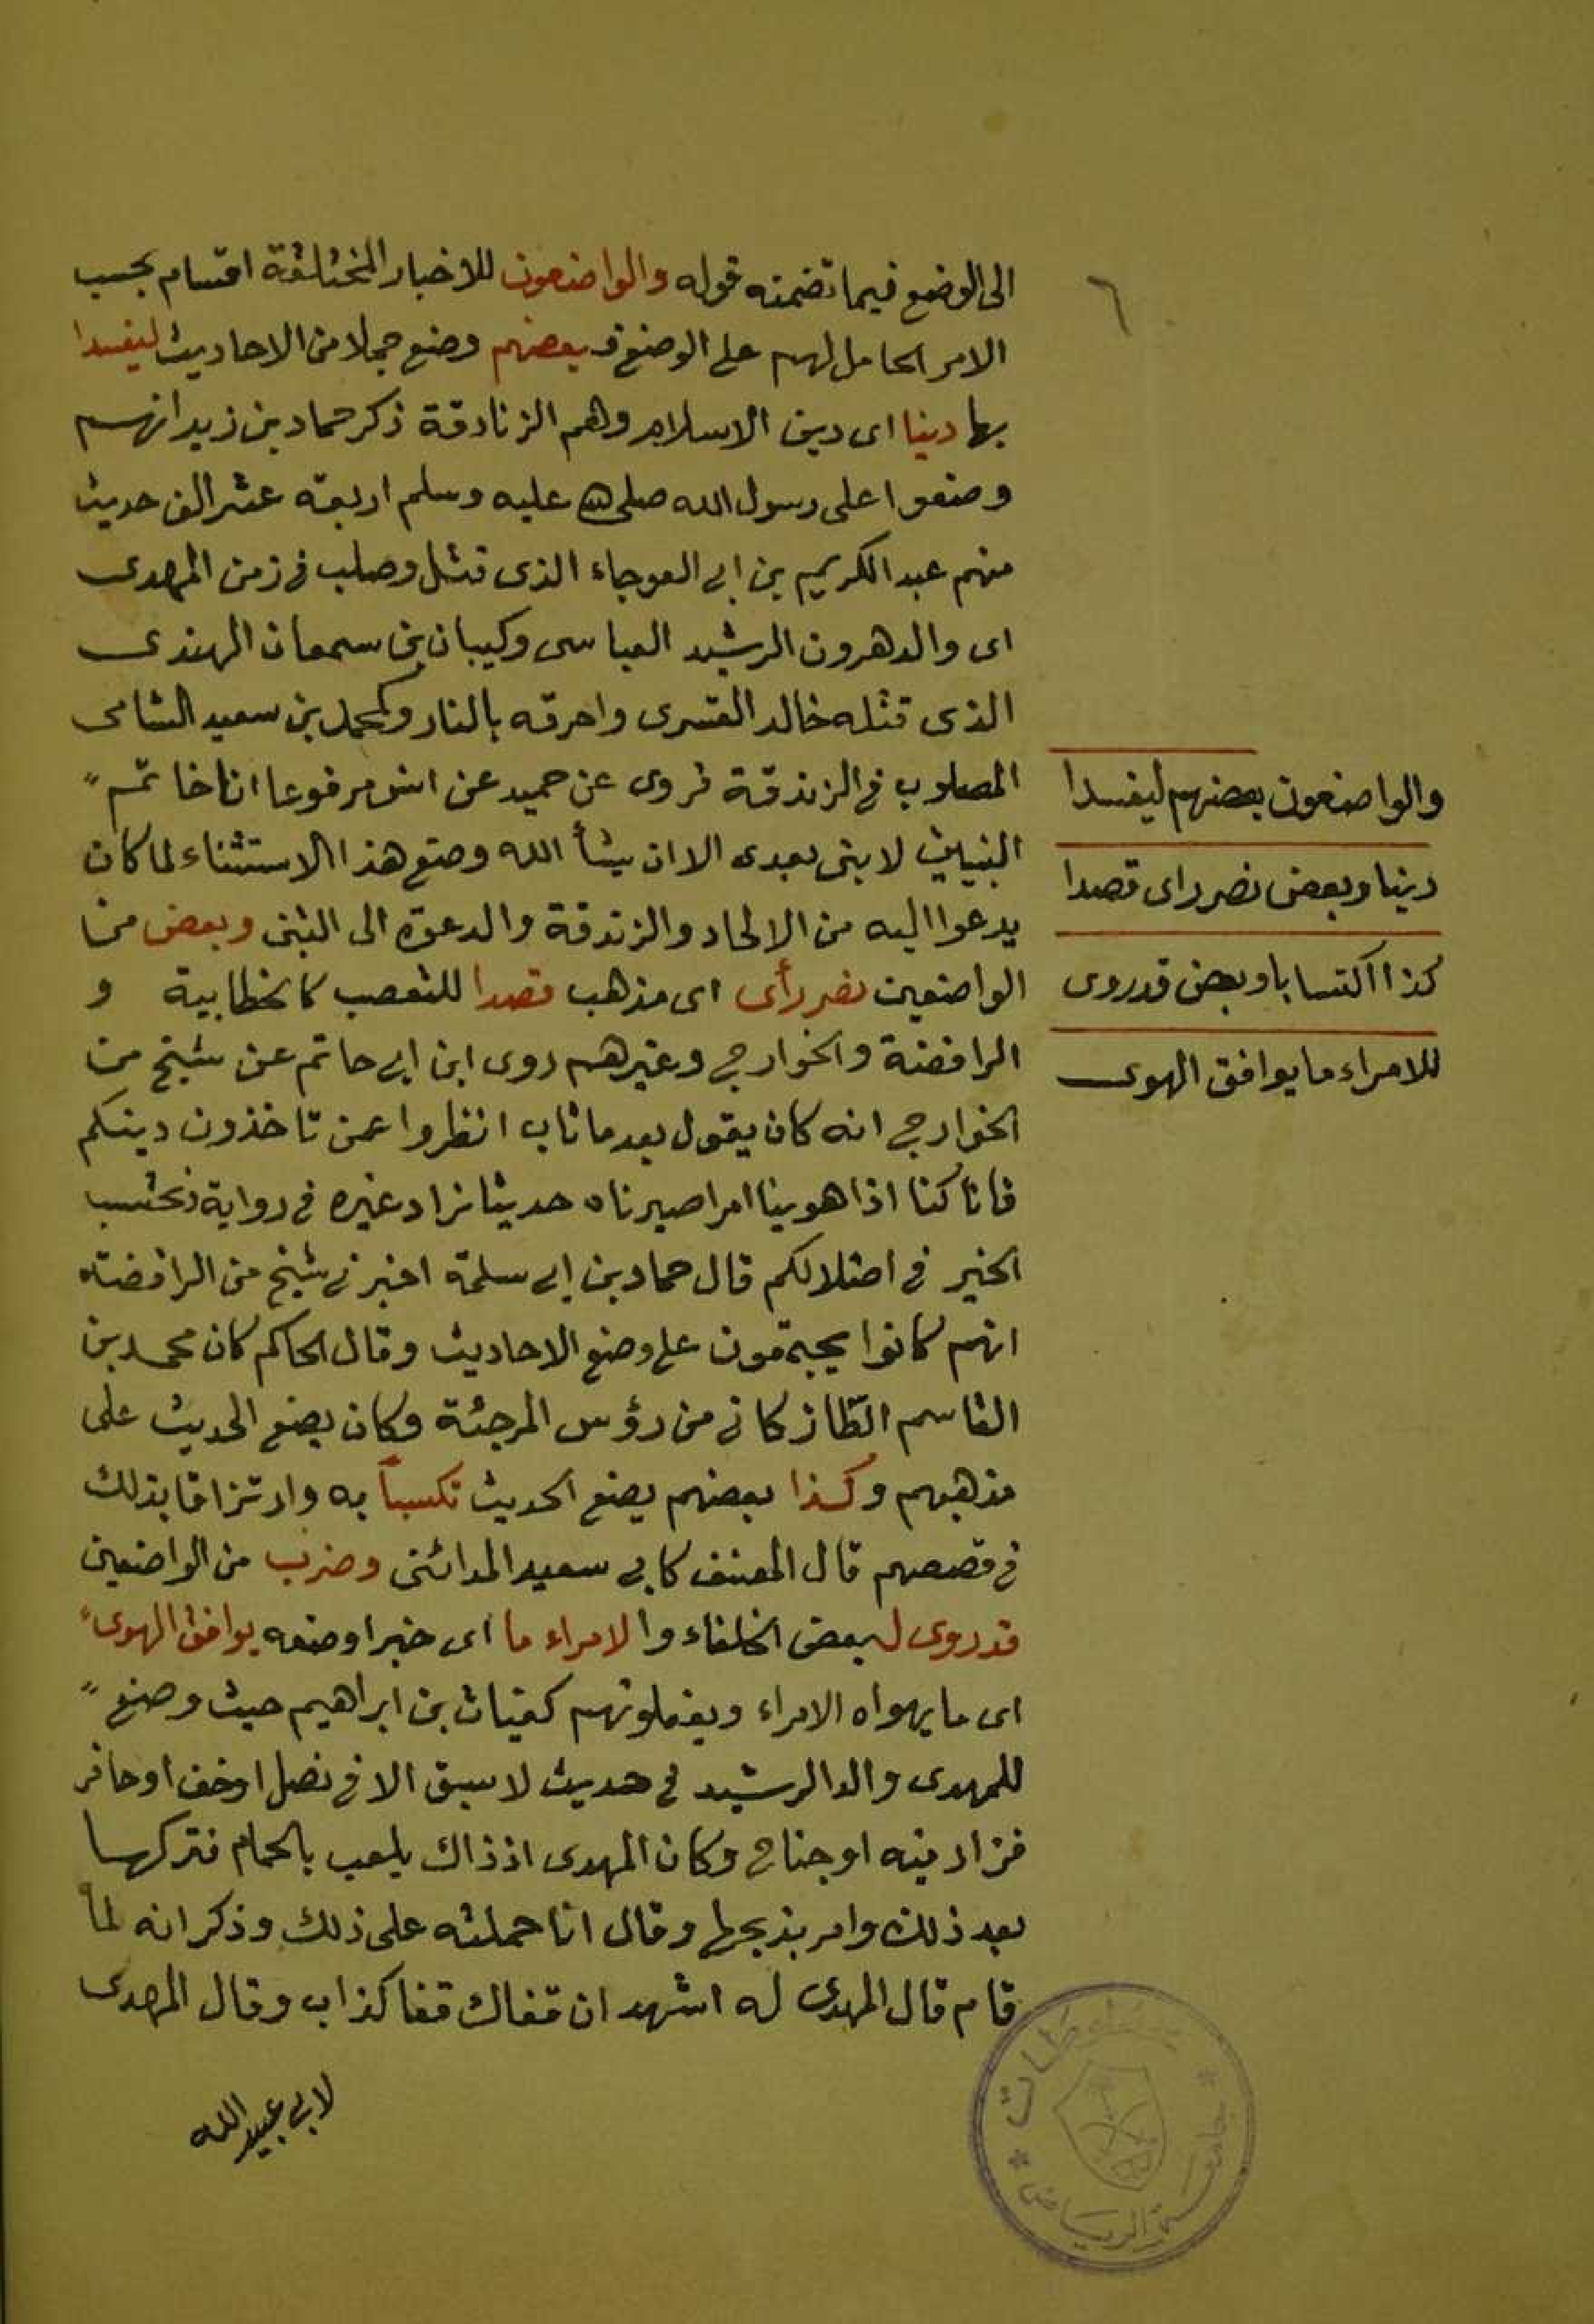 ٦
الى الوضع فيما تضمنته قوله والواضعون للاخبار المختلقة اقسام بحسب
الامر الحامل لهم على الوضع فبعضهم وضع جملا من الاحاديث ليفسدا
بها دينا اى دين الاسلام وهم الزنادقة ذكر حماد بن زيد انهم
وضعوا على رسول الله صلى الله عليه وسلم اربعة عشر الف حديث
منهم عبد الكريم بن ابى العوجاء الذى قتل وصلب فى زمن المهدى
اى والد هرون الرشيد العباسى وكبيان بن سمعان الهندى
الذى قتله خالد القسرى واحرقه بالنار وكمحمد بن سعيد الشامى
المصلوب فى الزندقة فروى عن حميد عن انس مرفوعا انا خاتم
النبيين لا بنى بعدى الا ان يشأ الله وضع هذا الاستثناء لما كان
يدعوا اليه من الالحاد والزندقة والدعوة الى التبنى وبعض من
الواضعين نصر رأى اى مذهب قصدا للتعصب كالخطابية و
الرافضة والخوارج وغيرهم روى ابن ابى حاتم عن شيخ من
الخوارج انه كان يقول بعد ما تاب انظروا عمن تاخذون دينكم
فانا كنا اذا هوينا امرا صيرناه حديثا زاد غيره فى رواية ونحتسب
الخير فى اضلالكم قال حماد بن ابى سلمة اخبرنى شيخ من الرافضة
انهم كانوا يجتمعون على وضع الاحاديث وقال الحاكم كان محمد بن
القاسم الطاز كانى من رؤس المرجئة وكان يضع الحديث على
مذهبهم وكذا بعضهم يضع الحديث تكسبا به وارتزاقا بذلك
فى قصصهم قال المصنف كابى سعيد المدائنى وضرب من الواضعين
قد روى لبعض الخلفاء والامراء ما اى خبرا وضعه يوافق الهوى
اى ما يهواه الامراء ويفعلونهم كغياث بن ابراهيم حيث وضع
للمهدى والد الرشيد فى حديث لا سبق الا فى نصل او خف او حافر
فزاد فيه او جناح وكان المهدى اذ ذاك يلعب بالحمام فتركها
بعد ذلك وامر بذبحها وقال انا حملته على ذلك وذكر انه لما
قام قال المهدى له اشهد ان قفاك قفا كذاب وقال المهدى
لابى عبيد الله
والواضعون بعضهم ليفسدا
دينا وبعض نصر راى قصدا
كذا اكتسابا وبعض قد روى
للامراء ما يوافق الهوى
جامعة الرياض